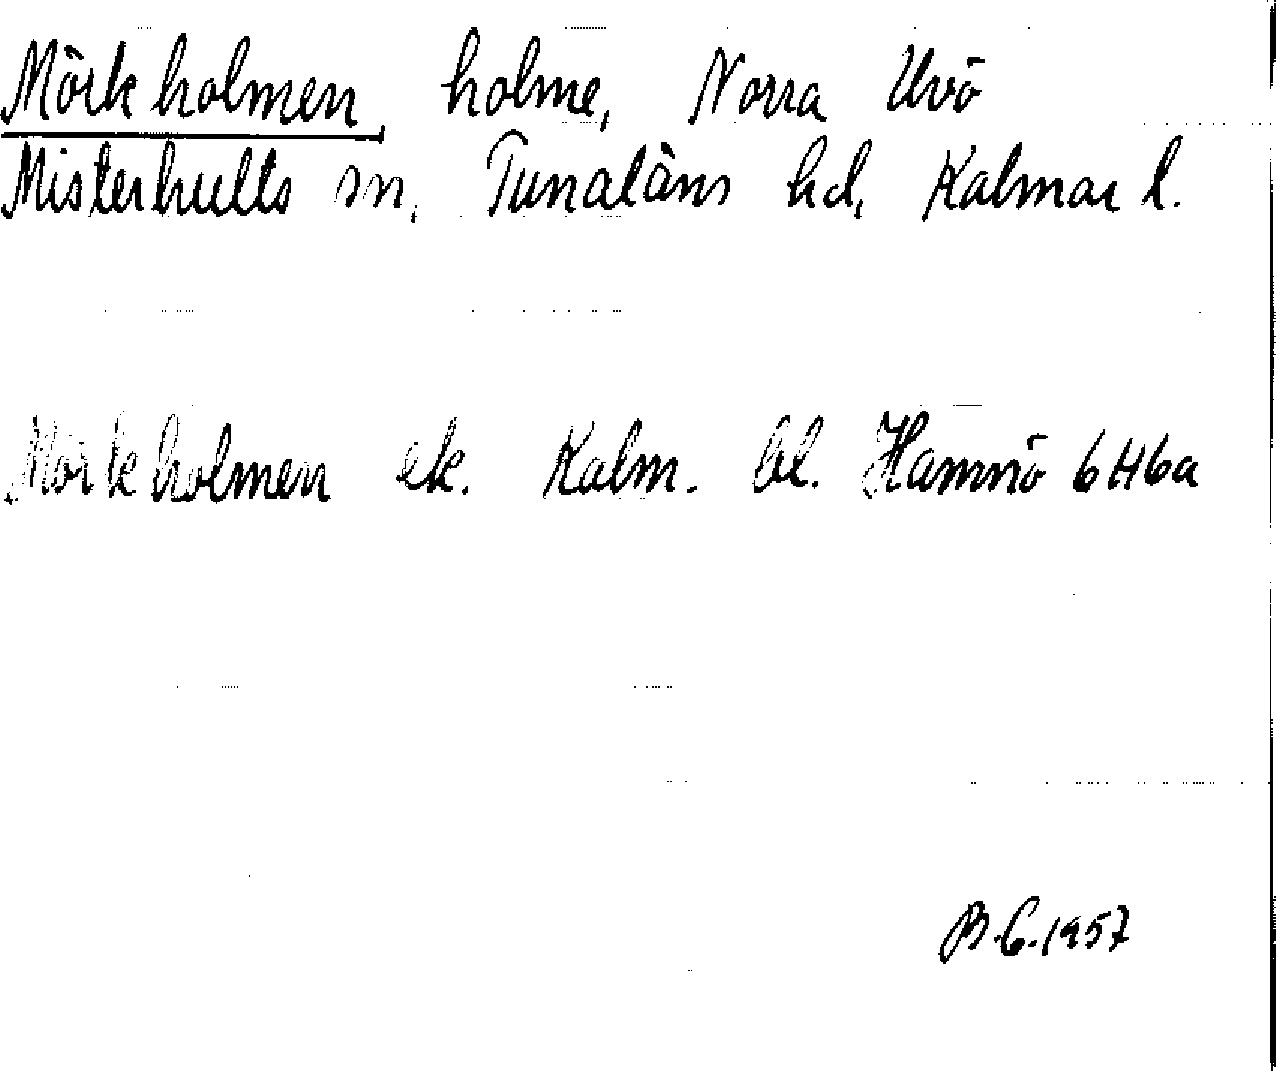 Mörkholmen, holme, Norra Uvö
Misterhults sn, Tunaläns hd, Kalmar l.
Mörkholmen ek. Kalm. bl. Hamnö 6H6a
B.G.1957